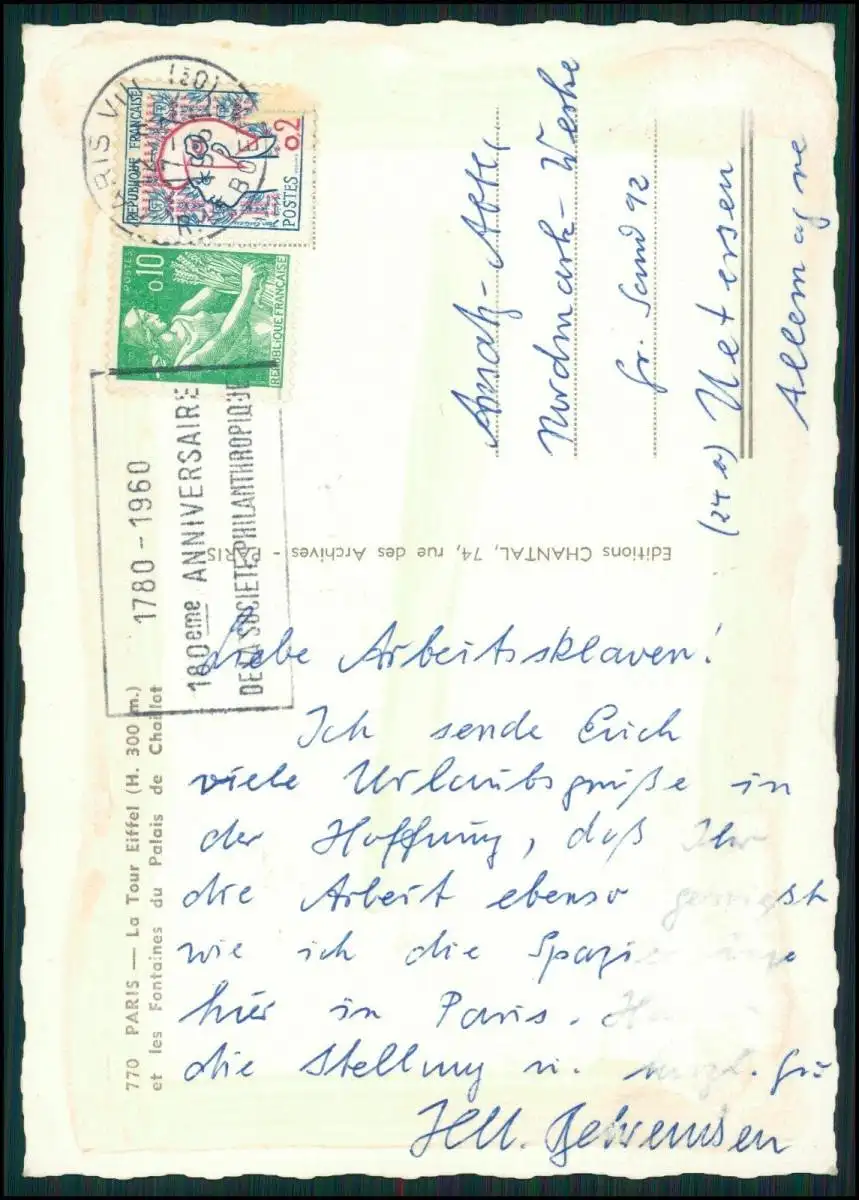 Liebe Arbeitssklaven!
Ich sende Euch
viele Urlaubsgrüße in
der Hoffnung, daß Ihr
die Arbeit ebenso genießt
wie ich die
hier in Paris.
die Stellung u.
Behrendsen
Nordmark-Werke
Gr. Sand 92
(24 a) Uetersen
Allemagne
REPUBLIQUE FRANÇAISE
0,2
POSTES
POSTES
0,10
REPUBLIQUE FRANÇAISE
PARIS VIII (30)
1780-1960
180eme ANNIVERSAIRE
DE LA SOCIETE PHILANTHROPIQUE
Editions CHANTAL, 74, rue des Archives - PARIS
770 PARIS — La Tour Eiffel (H. 300 m.)
et les Fontaines du Palais de Chaillot